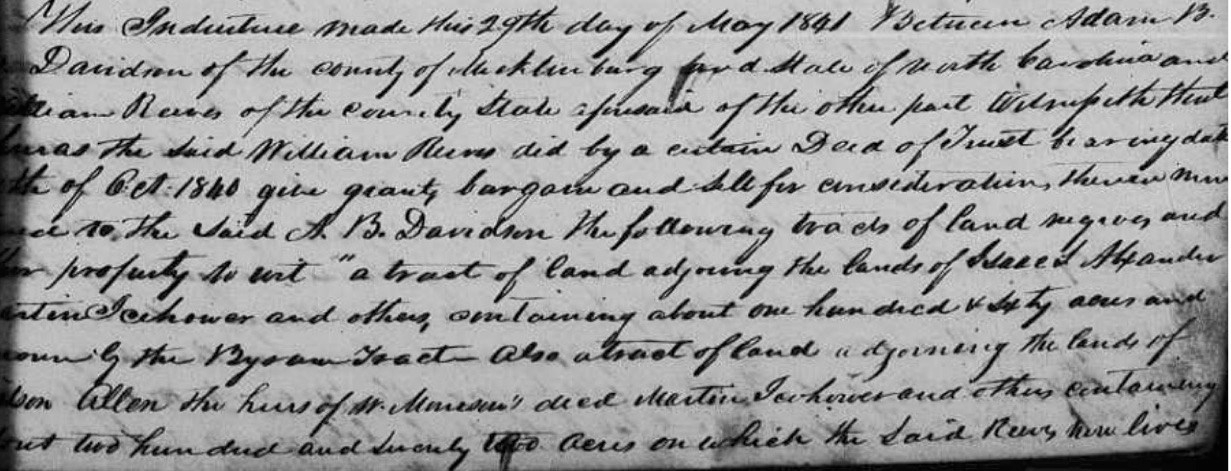 This Indenture made this 29th day of May 1841 Between Adam B.
Davidson of the county of Mecklinburg and State of North Carolina and
William Reeves of the county State aforesaid of the other part Witnesseth that
whereas the said William Reeves did by a certain Deed of Trust bearing date
th of Oct. 1840 give grant, bargain and sell for consideration therein
to the said A. B. Davidson the following tracts of land negroes and
property to wit "a tract of land adjoing the lands of Isaac S Alexander
Martin Icehower and others, containing about one hundred & sixty acres and
the Byram Tract Also a tract of land adjoining the lands of
Allen the heirs of W. Morrison's decd Martin Icehower and others containing
about two hundred and seventy two acres on which the said Reeves now lives